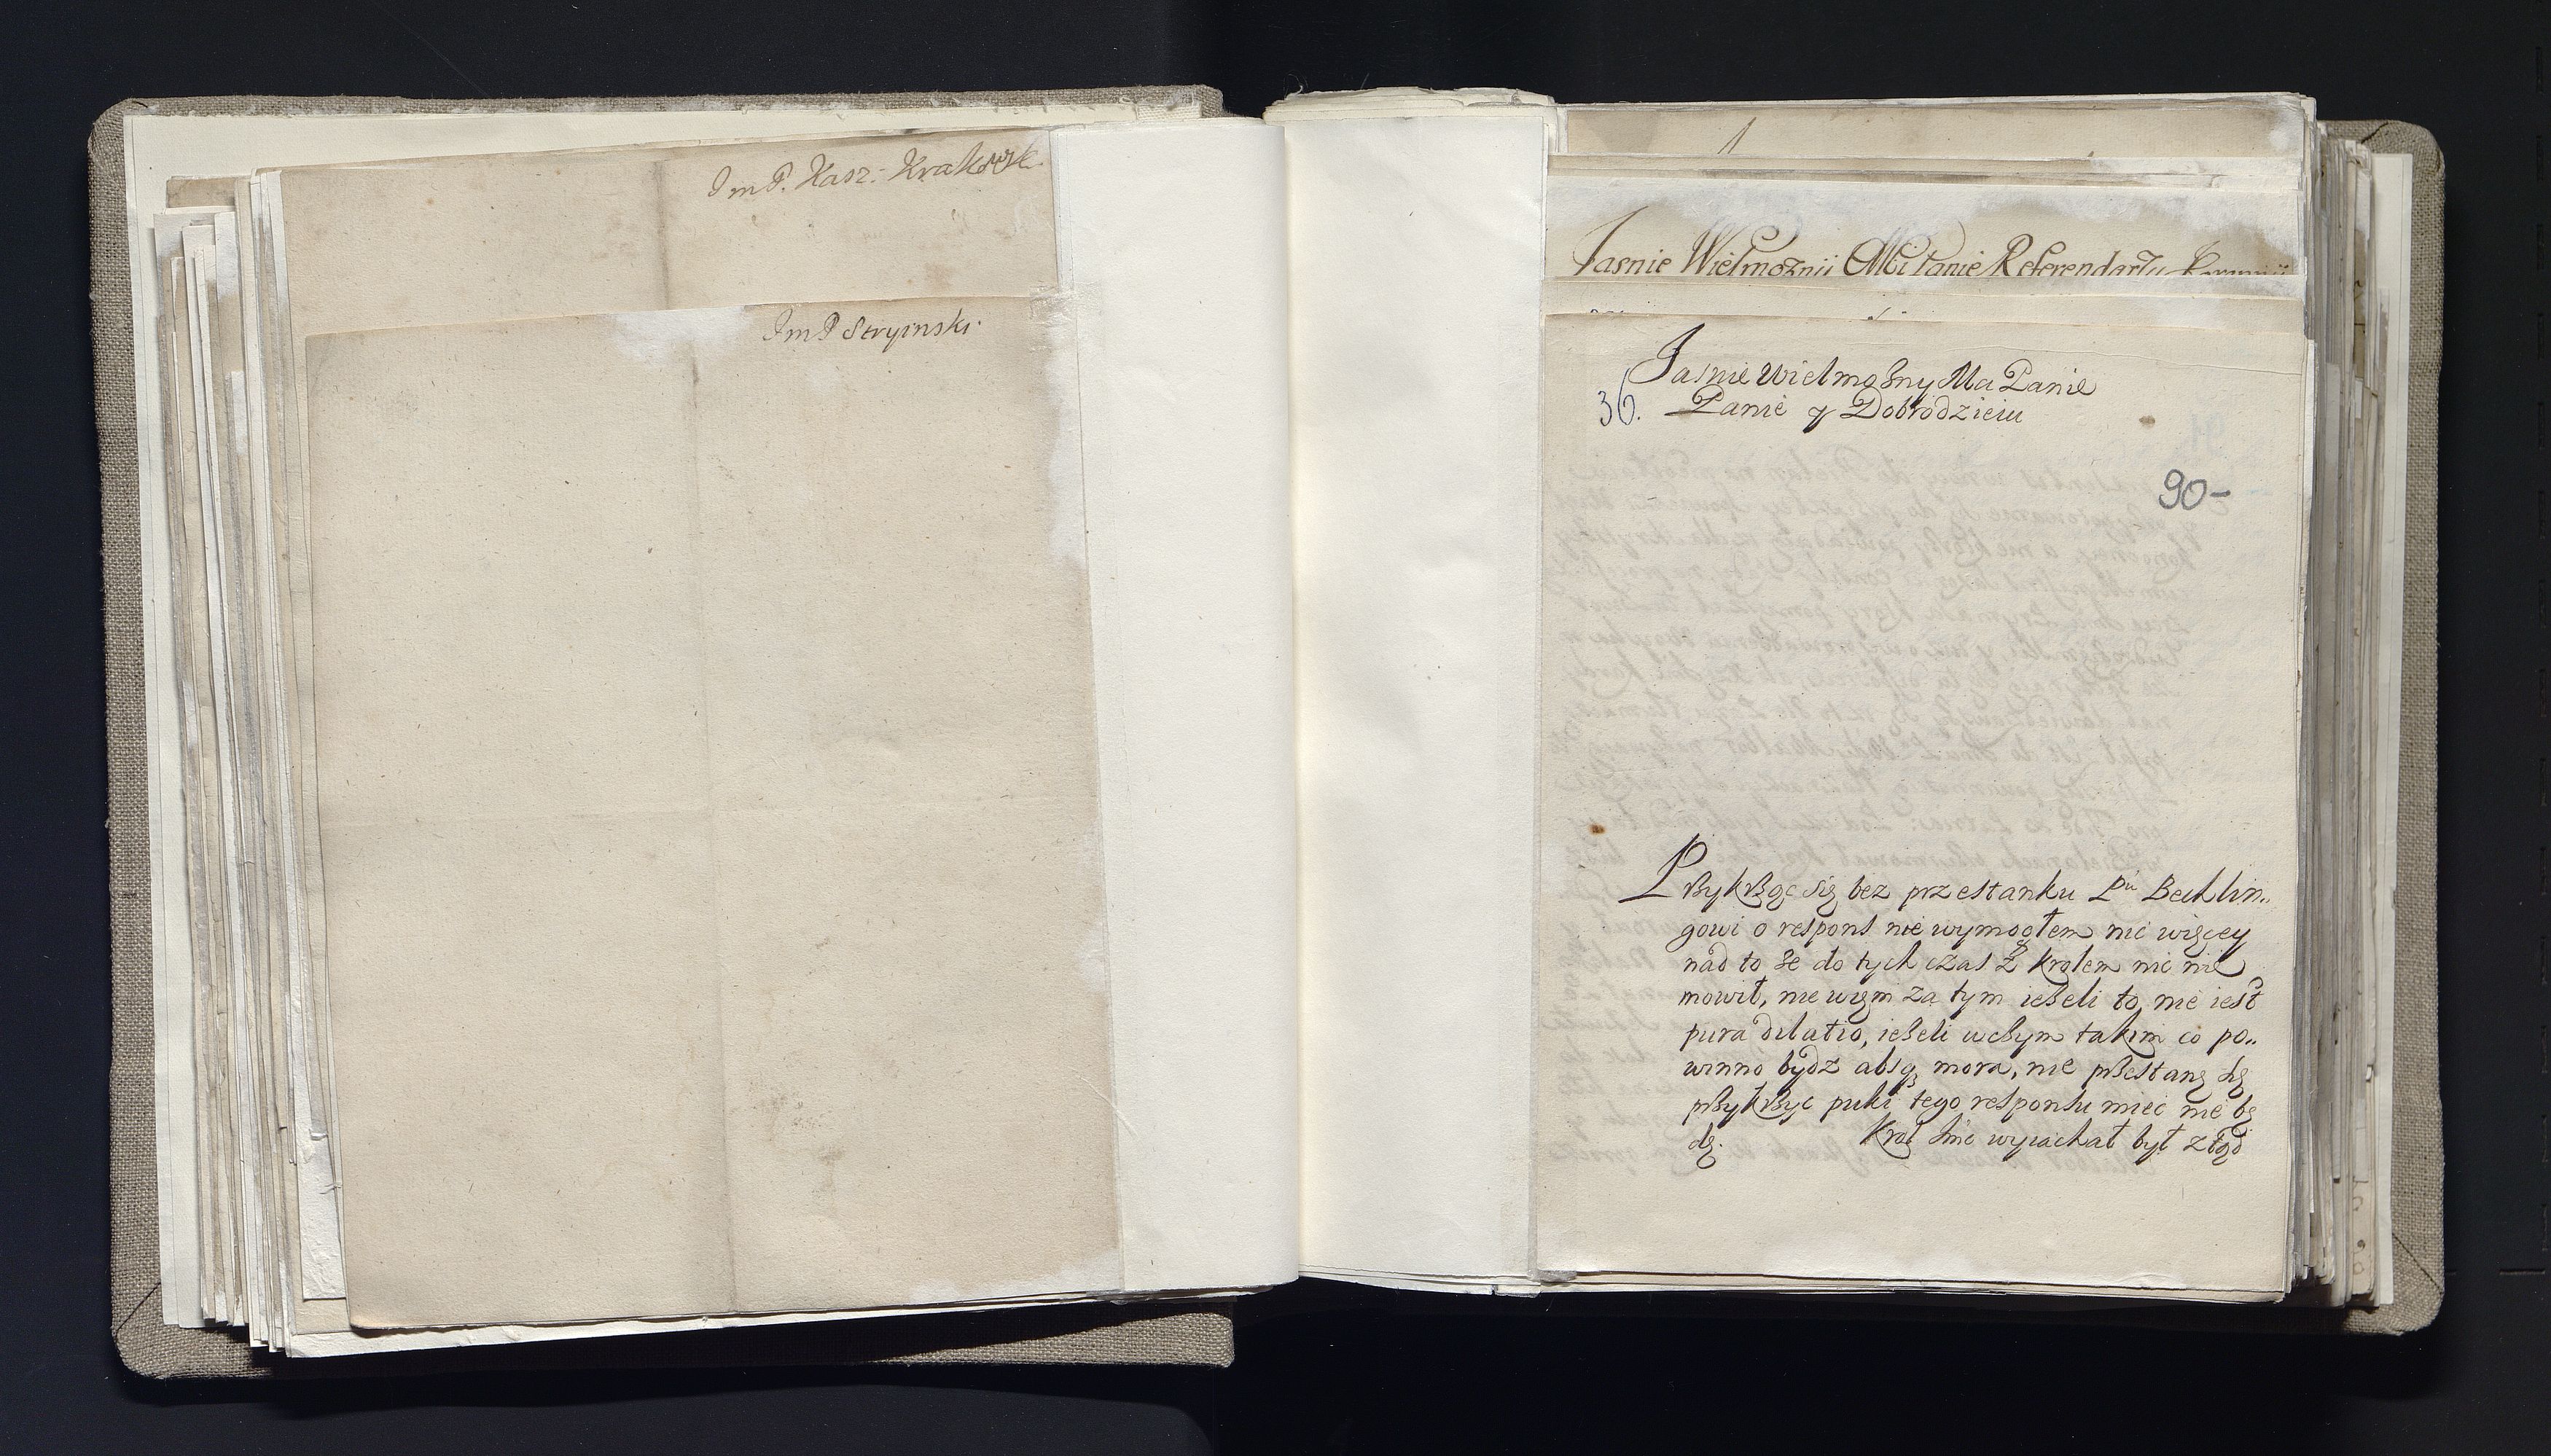 JmP. Kasz: Krakowsk.
JmP Stryinski.
1
Jasnie Wielmoznii Mci Panie Referendarzu
Jasnie Wielmożny Mci Panie
36. Panie y Dobrodzieiu
90-
Przykrząc się bez przestanku Pu Becklin„
gowi o respons nie wymogłem nic więcey
nad to że do tych czas z krolem nic nie
mowił, nie wiem za tym ieżeli to nie iest
pura dilatio, ieżeli w czym takim co po„
winno bydz absq3 mora, nie przestanę się
przykrzyć puki tego responsu mieć nie bę
dę. Krol Jmć wyiachał był ztąd